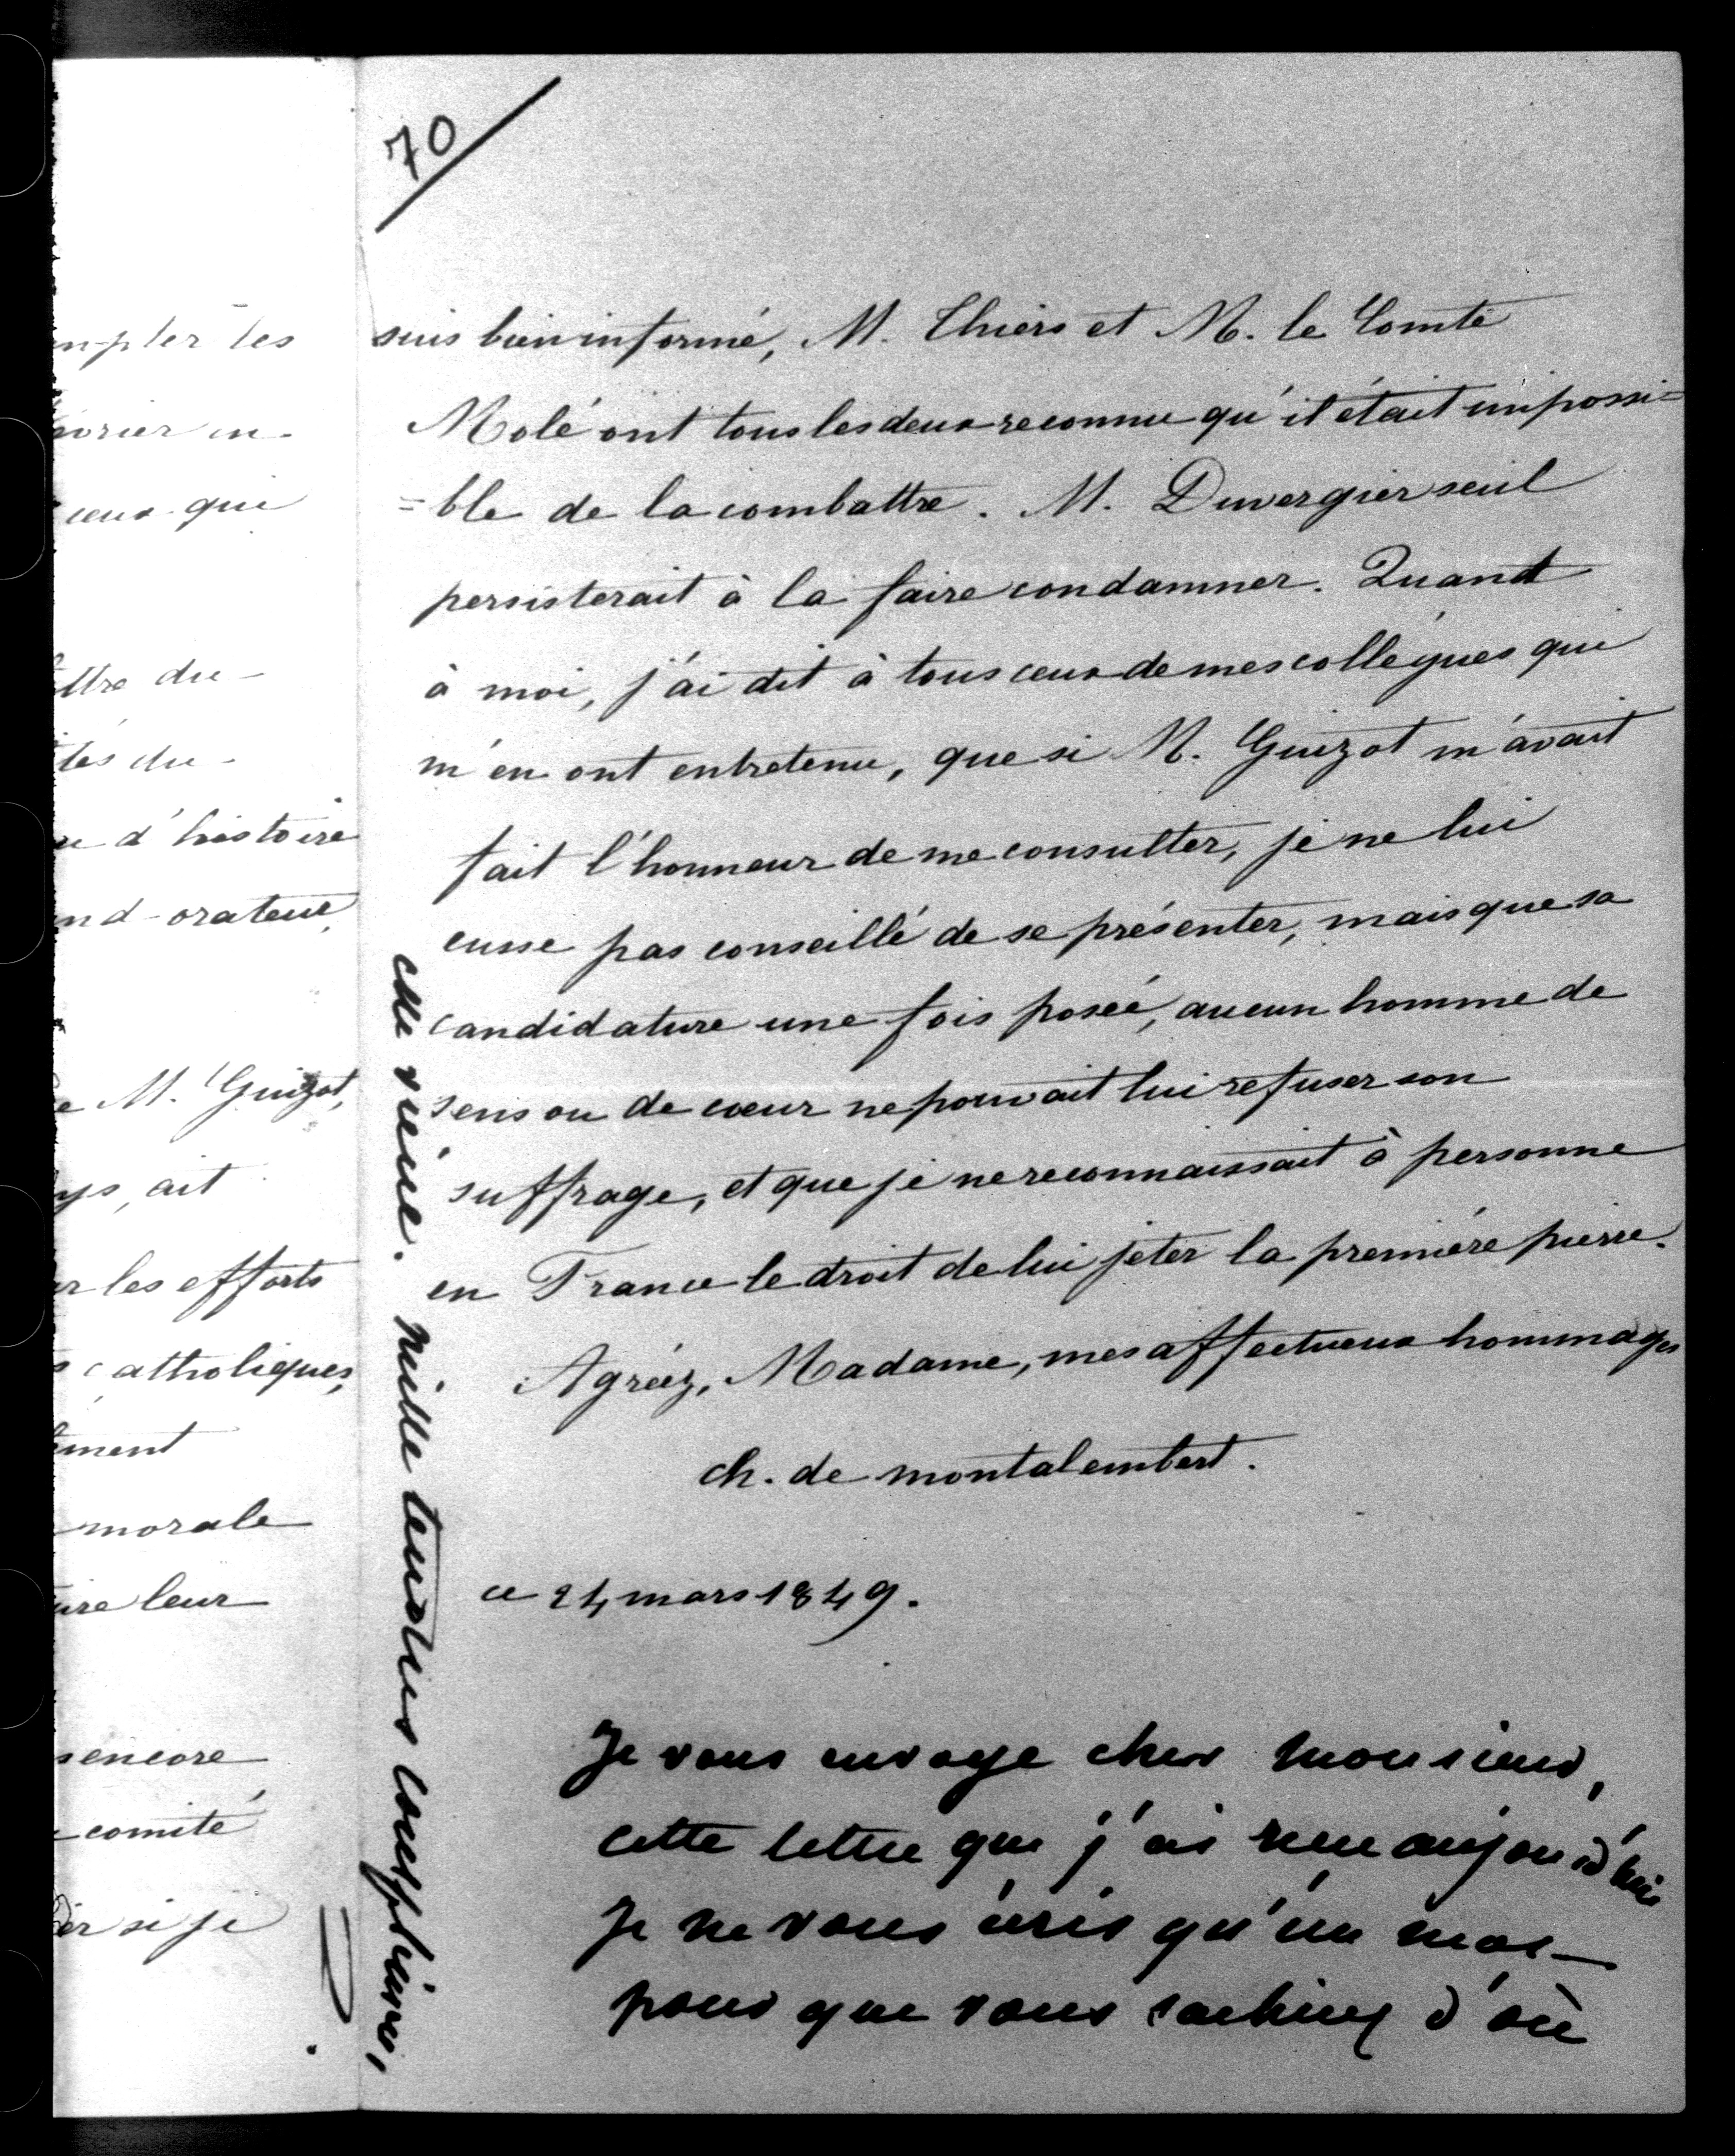 70
suis bien informé, M. Thiers et M. le Comte
Molé ont tous les deux reconnu qu'il était impossi=
=ble de la combattre. M. Duvergier seul
persisterait à la faire condamner. Quand
à moi, j'ai dit à tous ceux de mes collègues qui
m'en ont entretenu, que si M. Guizot m'avait
fait l'honneur de me consulter, je ne lui
eusse pas conseillé de se présenter, mais que sa
candidature une fois posée, aucun homme de
sens ou de cœur ne pouvait lui refuser son
suffrage, et que je ne reconnaissait à personne
en France le droit de lui jeter la première pierre.
Agréez, Madame, mes affectueux hommages
ch. de montalembert.
ce 24 mars 1849.
Je vous envoye cher monsieur,
cette lettre que j'ai reçue aujourd'hui
Je ne vous écris qu'un mot
pour que vous sachiez d'où
elle vient. mille tendres complimens,
mpter les
ceux qui
ttre du
tés du
d'histoire
nd orateur,
e M. Guizot,
ys, ait
r les efforts
catholiques,
ment
morale
ire leur
encore
comité
er si je